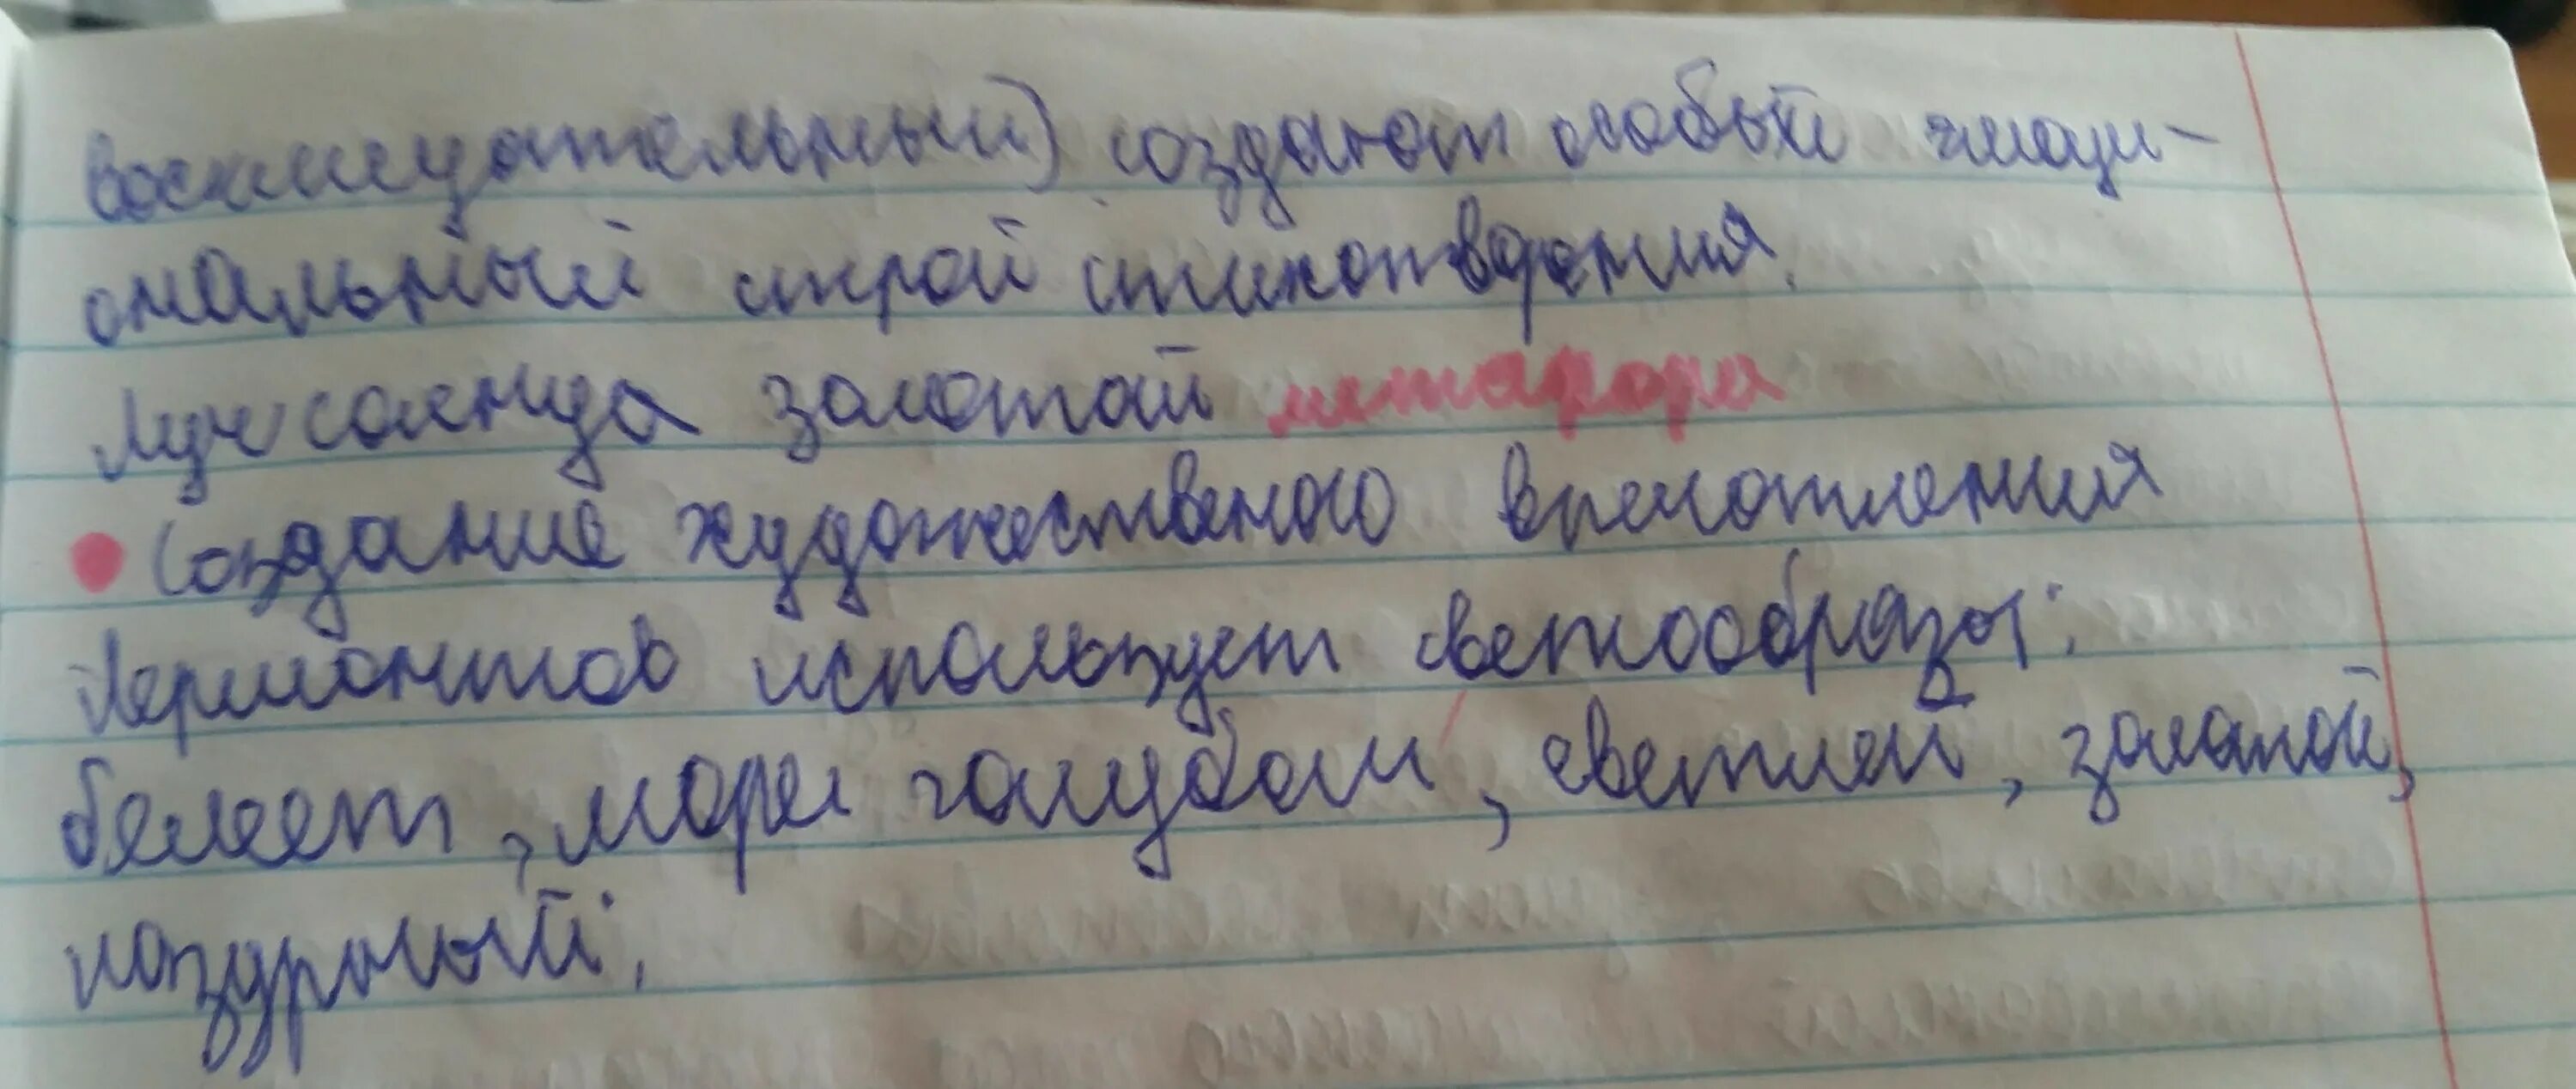 восклицательный) создают особый эмоци-
ональный строй стихотворения.
Луч солнца золотой метафора
Создание художественого вплотления
Лермонтов использует светообразы:
белеет, море голубом, светлей, золотой,
лазурный;